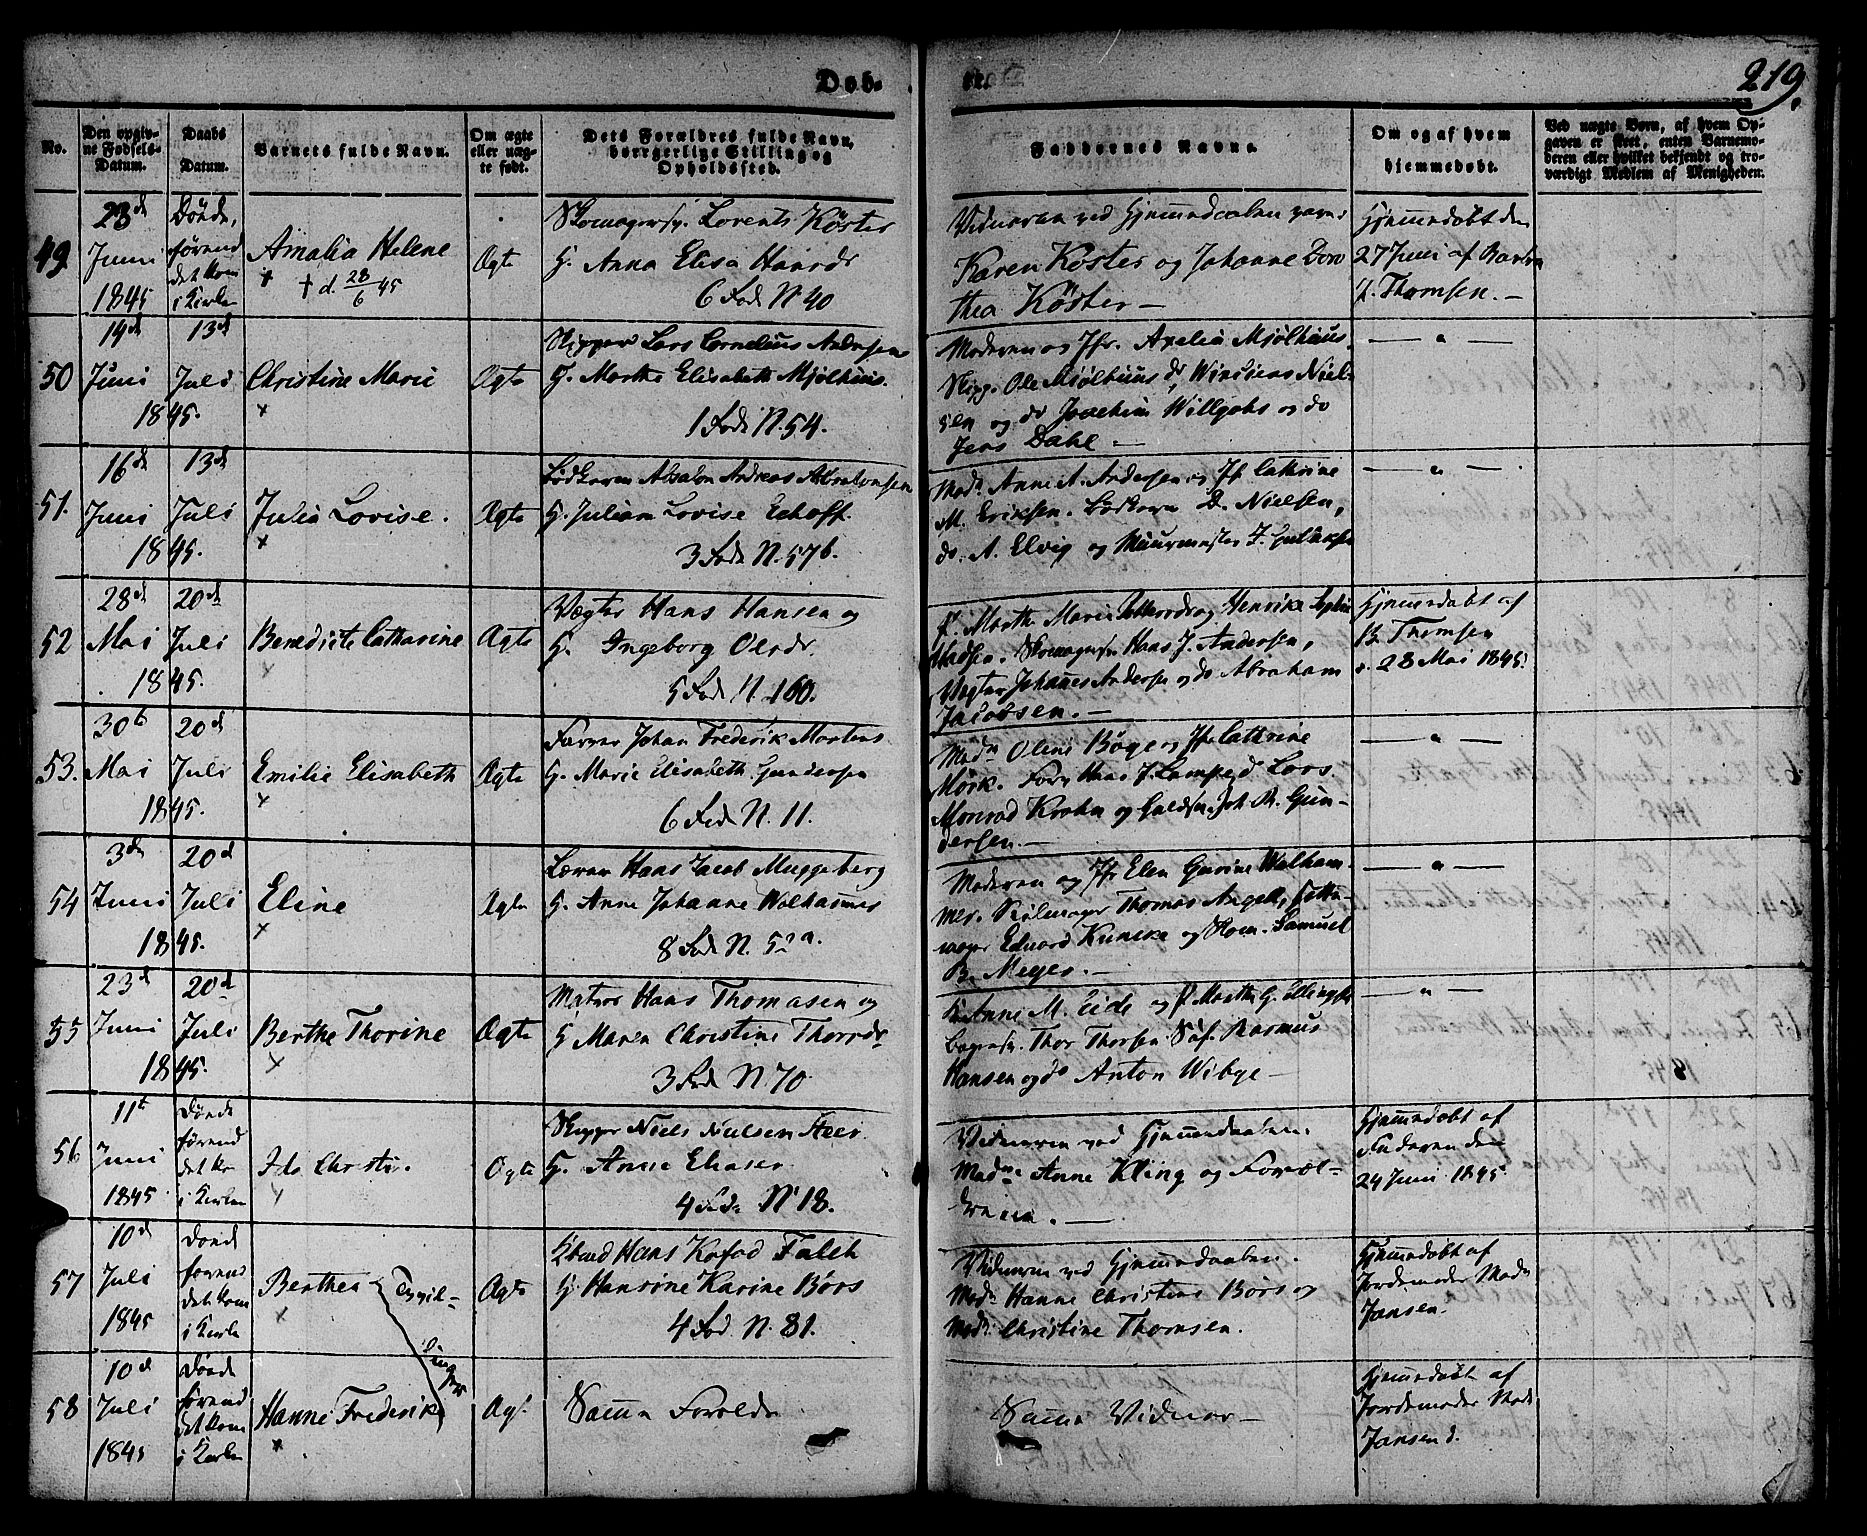 Døb-
te.
219.
No.
Den opgiv-
ne Fødsels-
Datum.
Daabs
Datum.
Barnets fulde Navn.
Om ægte
eller uæg-
te født.
Dets Forældres fulde Navn,
borgerlige Stilling og
Opholdssted.
Faddernes Navne.
Om og af hvem
hjemmedøbt.
Ved uægte Børn, af hvem Op-
gaven er skeet, enten Barnemo-
deren eller hvilket bekjendt og tro-
værdigt Medlem af Menigheden.
49.
23d
Juni
1845
Døde,
førend
det kom
i Kirken
Amalia Helene
+ d. 28/6 45
Ægte
Skomagersv. Lorents Köster
H. Anna Elisa Haard
6 Fod. N 40
Vidnerne ved Hjemmedaaben vare:
Karen Köster og Johanne Doro
thea Köster —
Hjemmedøbt den
27 Juni af
J. Thomsen. —
50
14d
Juni
13d
Juli
1845.
Christine Marie
Ægte
Skipper Lars Cornelius Andersen
H. Marthe Elisabeth Mjølhuus.
1 Fod. N. 54.
Moderen og Jfr. Axelia Mjølhuus,
Skipp. Ole Mjølhuus, Niel-
sen og do Joachim Willgohs og do
Jens Dahl —
— " —
51.
16d
Juni
13d
Juli
1845.
Julia Lovise.
Ægte
Bødkeren Absalon Andreas Absalonsen
H. Juliane Lovise Echoff.
3 Fod. N. 57b.
Mad. Anne A. Andersen og Jf Cathrine
M. Eriksen. Bødkern D. Nielsen,
do. A. Elvig og Muurmester
— " —
52
28d
Mai
20de
Juli
1845.
Benedicte Catharine
Ægte
Vægter Hans Hansen og
H. Ingeborg Olsdr
5 Fod. N. 160.
P. Marthe Marie og Henrike
Madsen. Skomagersv. Hans J. Andersen,
Vægter Johannes Andersen og do Abraham
Jacobsen. —
Hjemmedøbt af
B. Thomsen
d. 28 Mai 1845.
53.
30t
Mai
20d
Juli
1845.
Emilie Elisabeth
Ægte
Farver Johan Frederik Mortens
H. Marie Elisabeth Gundersen
6 Fod. N. 11.
Madm Oline Bøge og Jfr Cathrine
Mörk. Farv Hans J. Lampe, Lars
Monrad Krohn og Joh. R. Gun-
dersen. —
— " —
54
3de
Juni
20d
Juli
1845.
Eline
Ægte
Hans Jacob Muggeberg
H. Anne Johanne Walhammer
8 Fod. N. 52a.
Moderen og Jfr Elen Gurine Walham-
mer. Seilmager Thomas Angell,
mager Eduard Kuncke og Samuel
B. Meyer. —
— " —
55
23d
Juni
20d
Juli
1845.
Berthe Thorine
Ægte
Matros Hans Thomasen og
H Maren Christine Thorsdr
3 Fod. N 70
Anne M. Eide og P Marthe G.
Bagersv. Thor Thorsen. Søf. Rasmus
Hansen og do Anton Wibye —
— " —
56
11t
Juni
1845
Døde
førend
det kom
i Kirken
Ida Christi.
Ægte
Skipper Niels Nielsen
H. Anne Eliasen
4 Fod. N 18.
Vidnerne ved Hjemmedaaben.
Madme Anne Kling og Foræl-
drene. —
Hjemmedøbt af
Faderen den
24 Juni 1845.
57
10d
Juli
1845
Døde
førend
det kom
i Kirken
Berthea
Tvil-
linger
Ægte
Hans Kofod Falch
H. Hansine Karine Børs
4 Fod. N. 81.
Vidnerne ved Hjemmedaaben.
Madm Hanne Christine Börs og
Madm Christine Thomsen.
Hjemmedøbt af
Jordemoder Madm
Jansen.
58
10d
Juli
1845
Døde
førend
det kom
i Kirken
Hanne Frederike
Ægt.
Samme Foreldre
Samme Vidner —
Hjemmedøbt af
Jordemoder Madm
Jansen d.